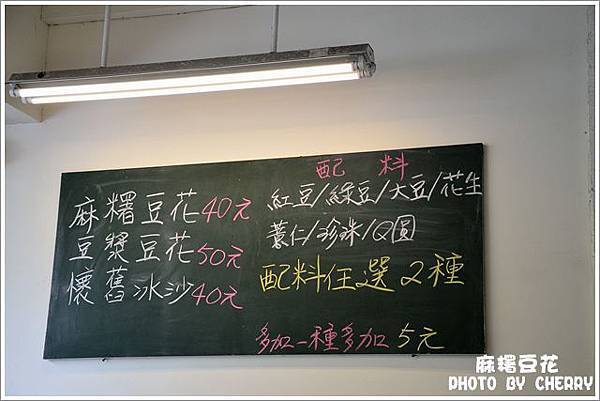 麻糬豆花40元
豆漿豆花50元
懷舊冰沙40元
配 料
紅豆/綠豆/大豆/花生
薏仁/珍珠/Q圓
配料任選2種
多加一種多加5元
麻糬豆花
PHOTO BY CHERRY